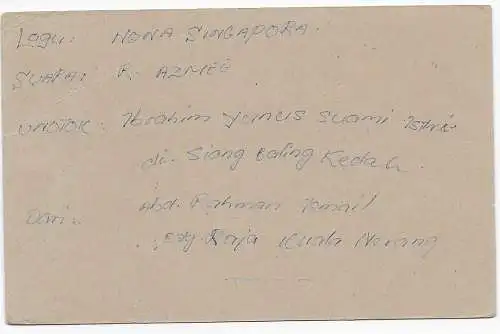 Lagu: NONA SINGAPORA.
SUARA: R. AZMEE
UNOTOK: Ibrahim Yunus Suami Istri
di. Siong Baling Kedah.
Dari: Abd. Rahman Ismail
Raja Kuala Nerang